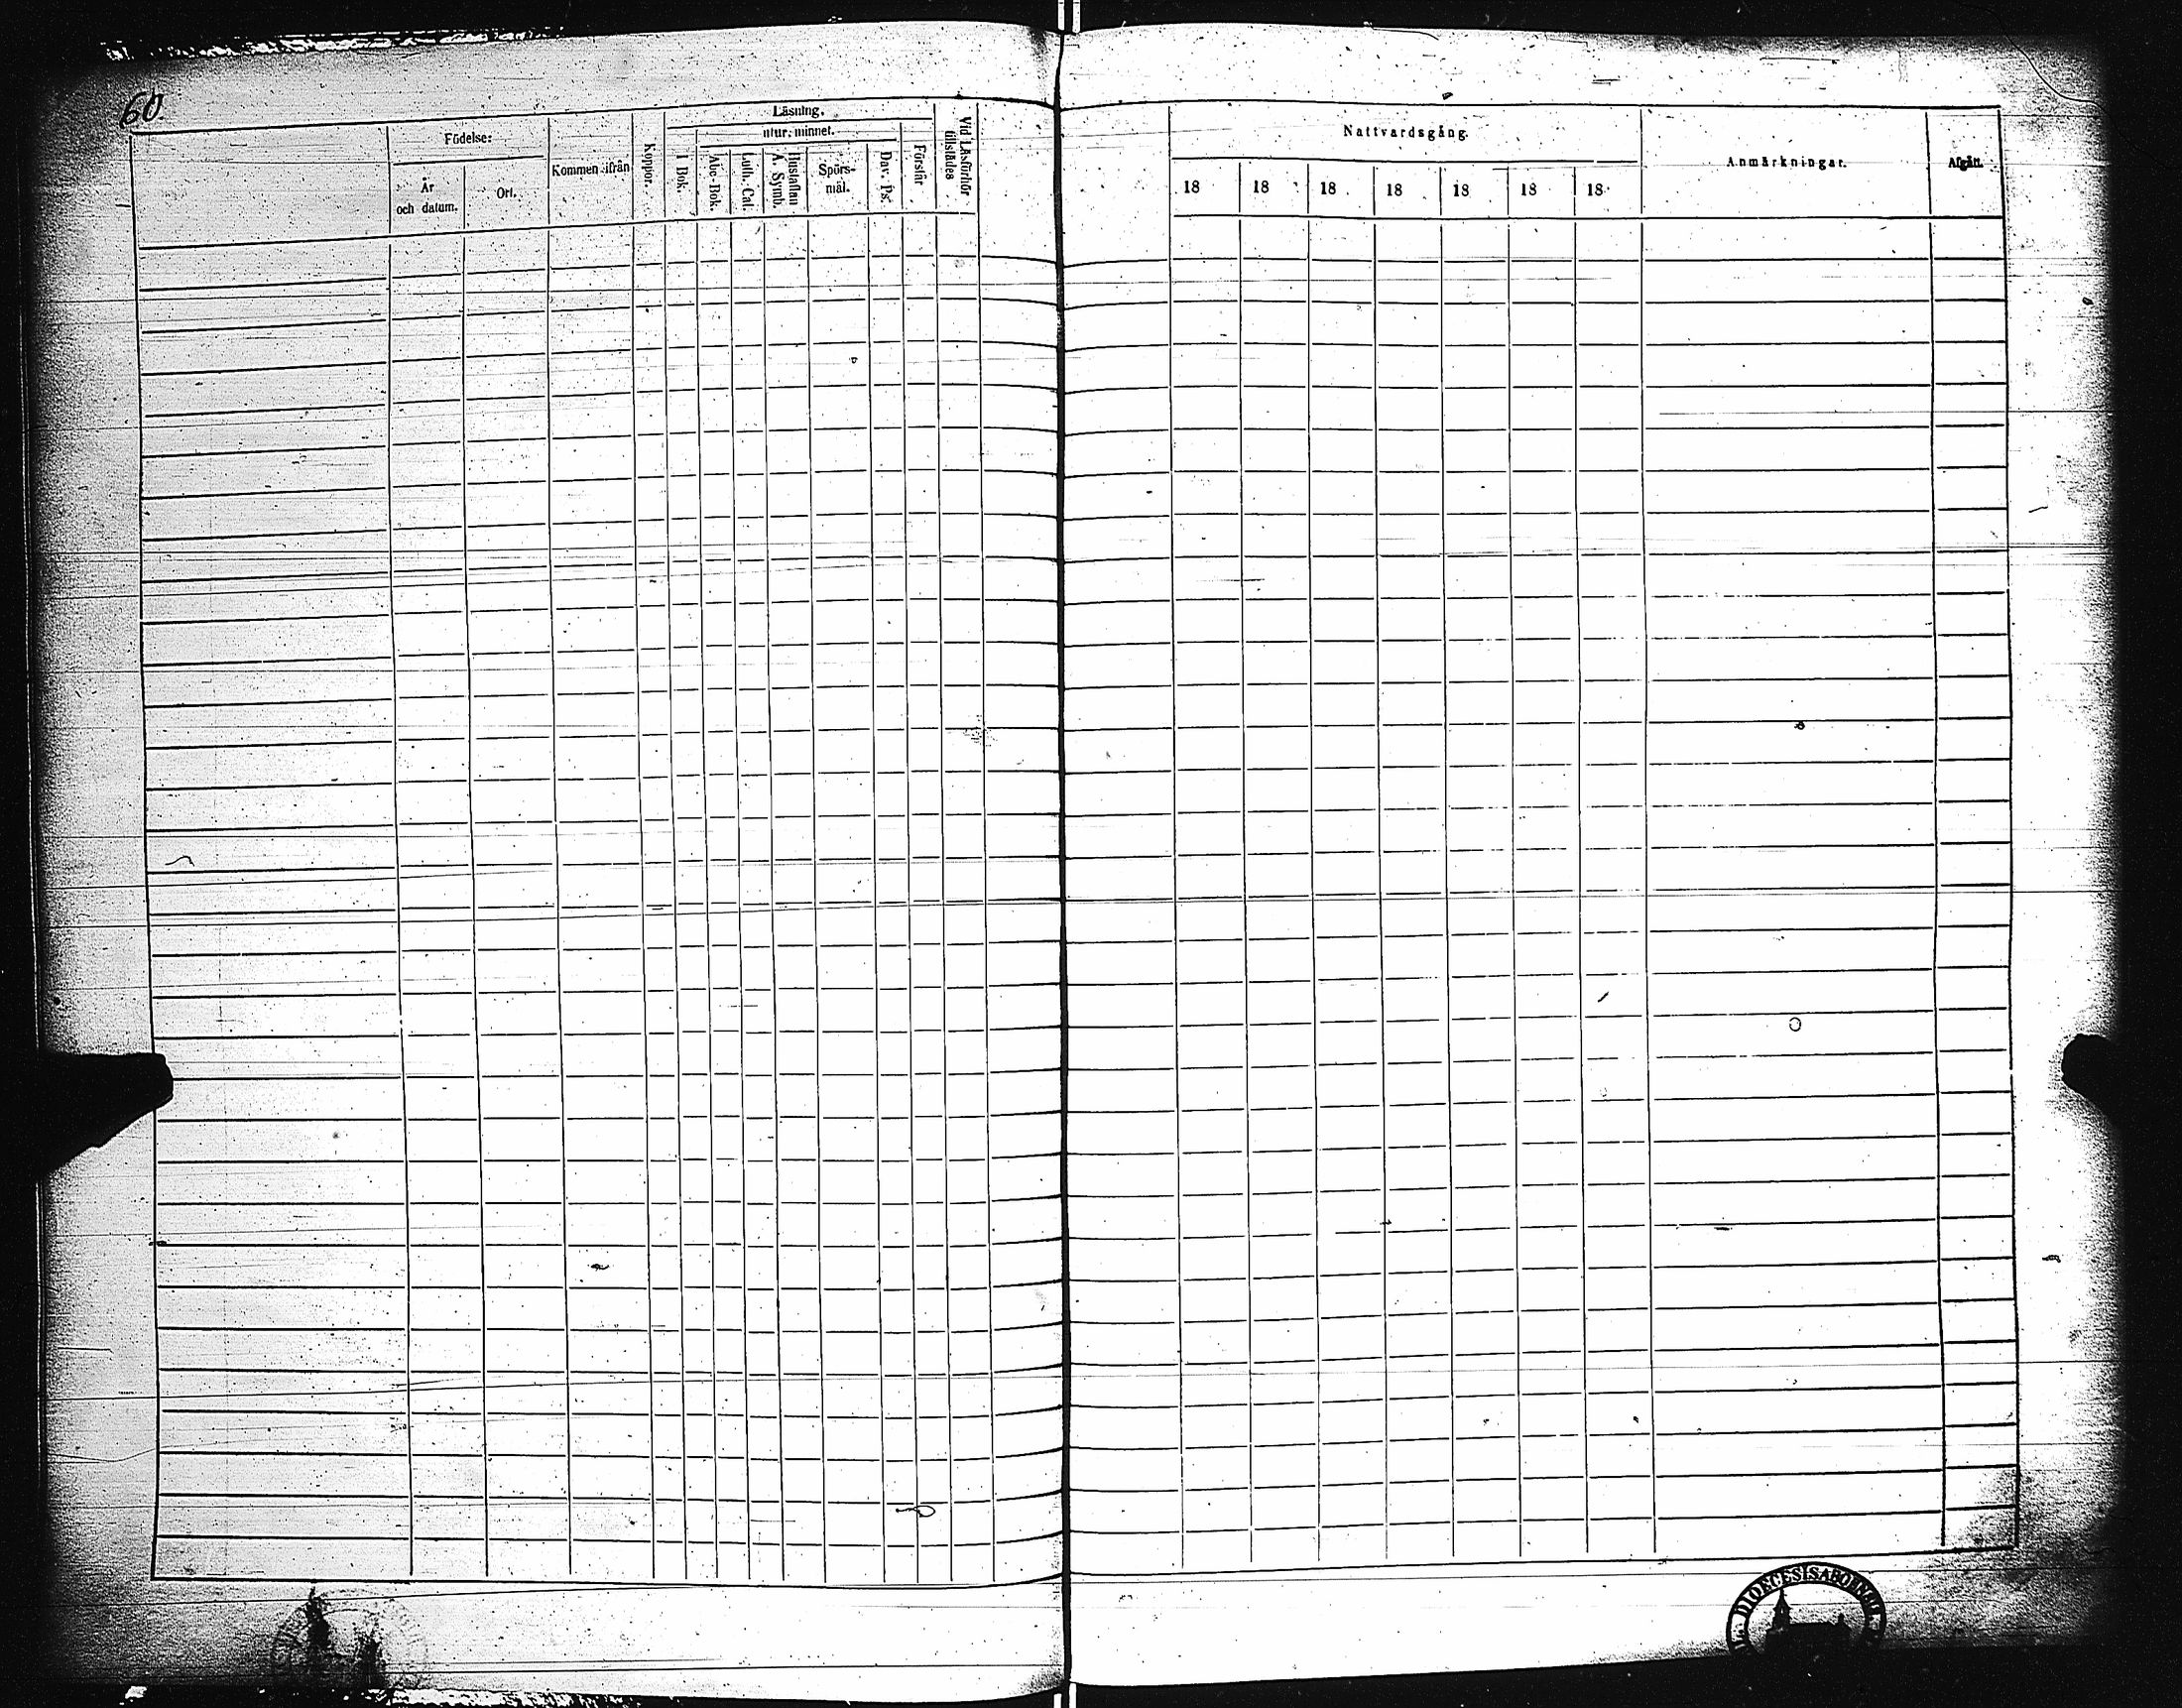 60.
Födelse:
År
och datum.
Ort.
Kommen ifrån
Koppor.
Läsning.
utur minnet.
I Bok.
Abc-Bok.
Luth. Cat.
Hustaflan
A. Symb.
Spörs-
mål.
Dav. Ps.
Förstår
Vid Läsförhör
tillstädes
Nattvardsgång.
18 18 18 18 18 18 18
Anmärkningar.
Afgått.
DIOECESIS ABOENSIS